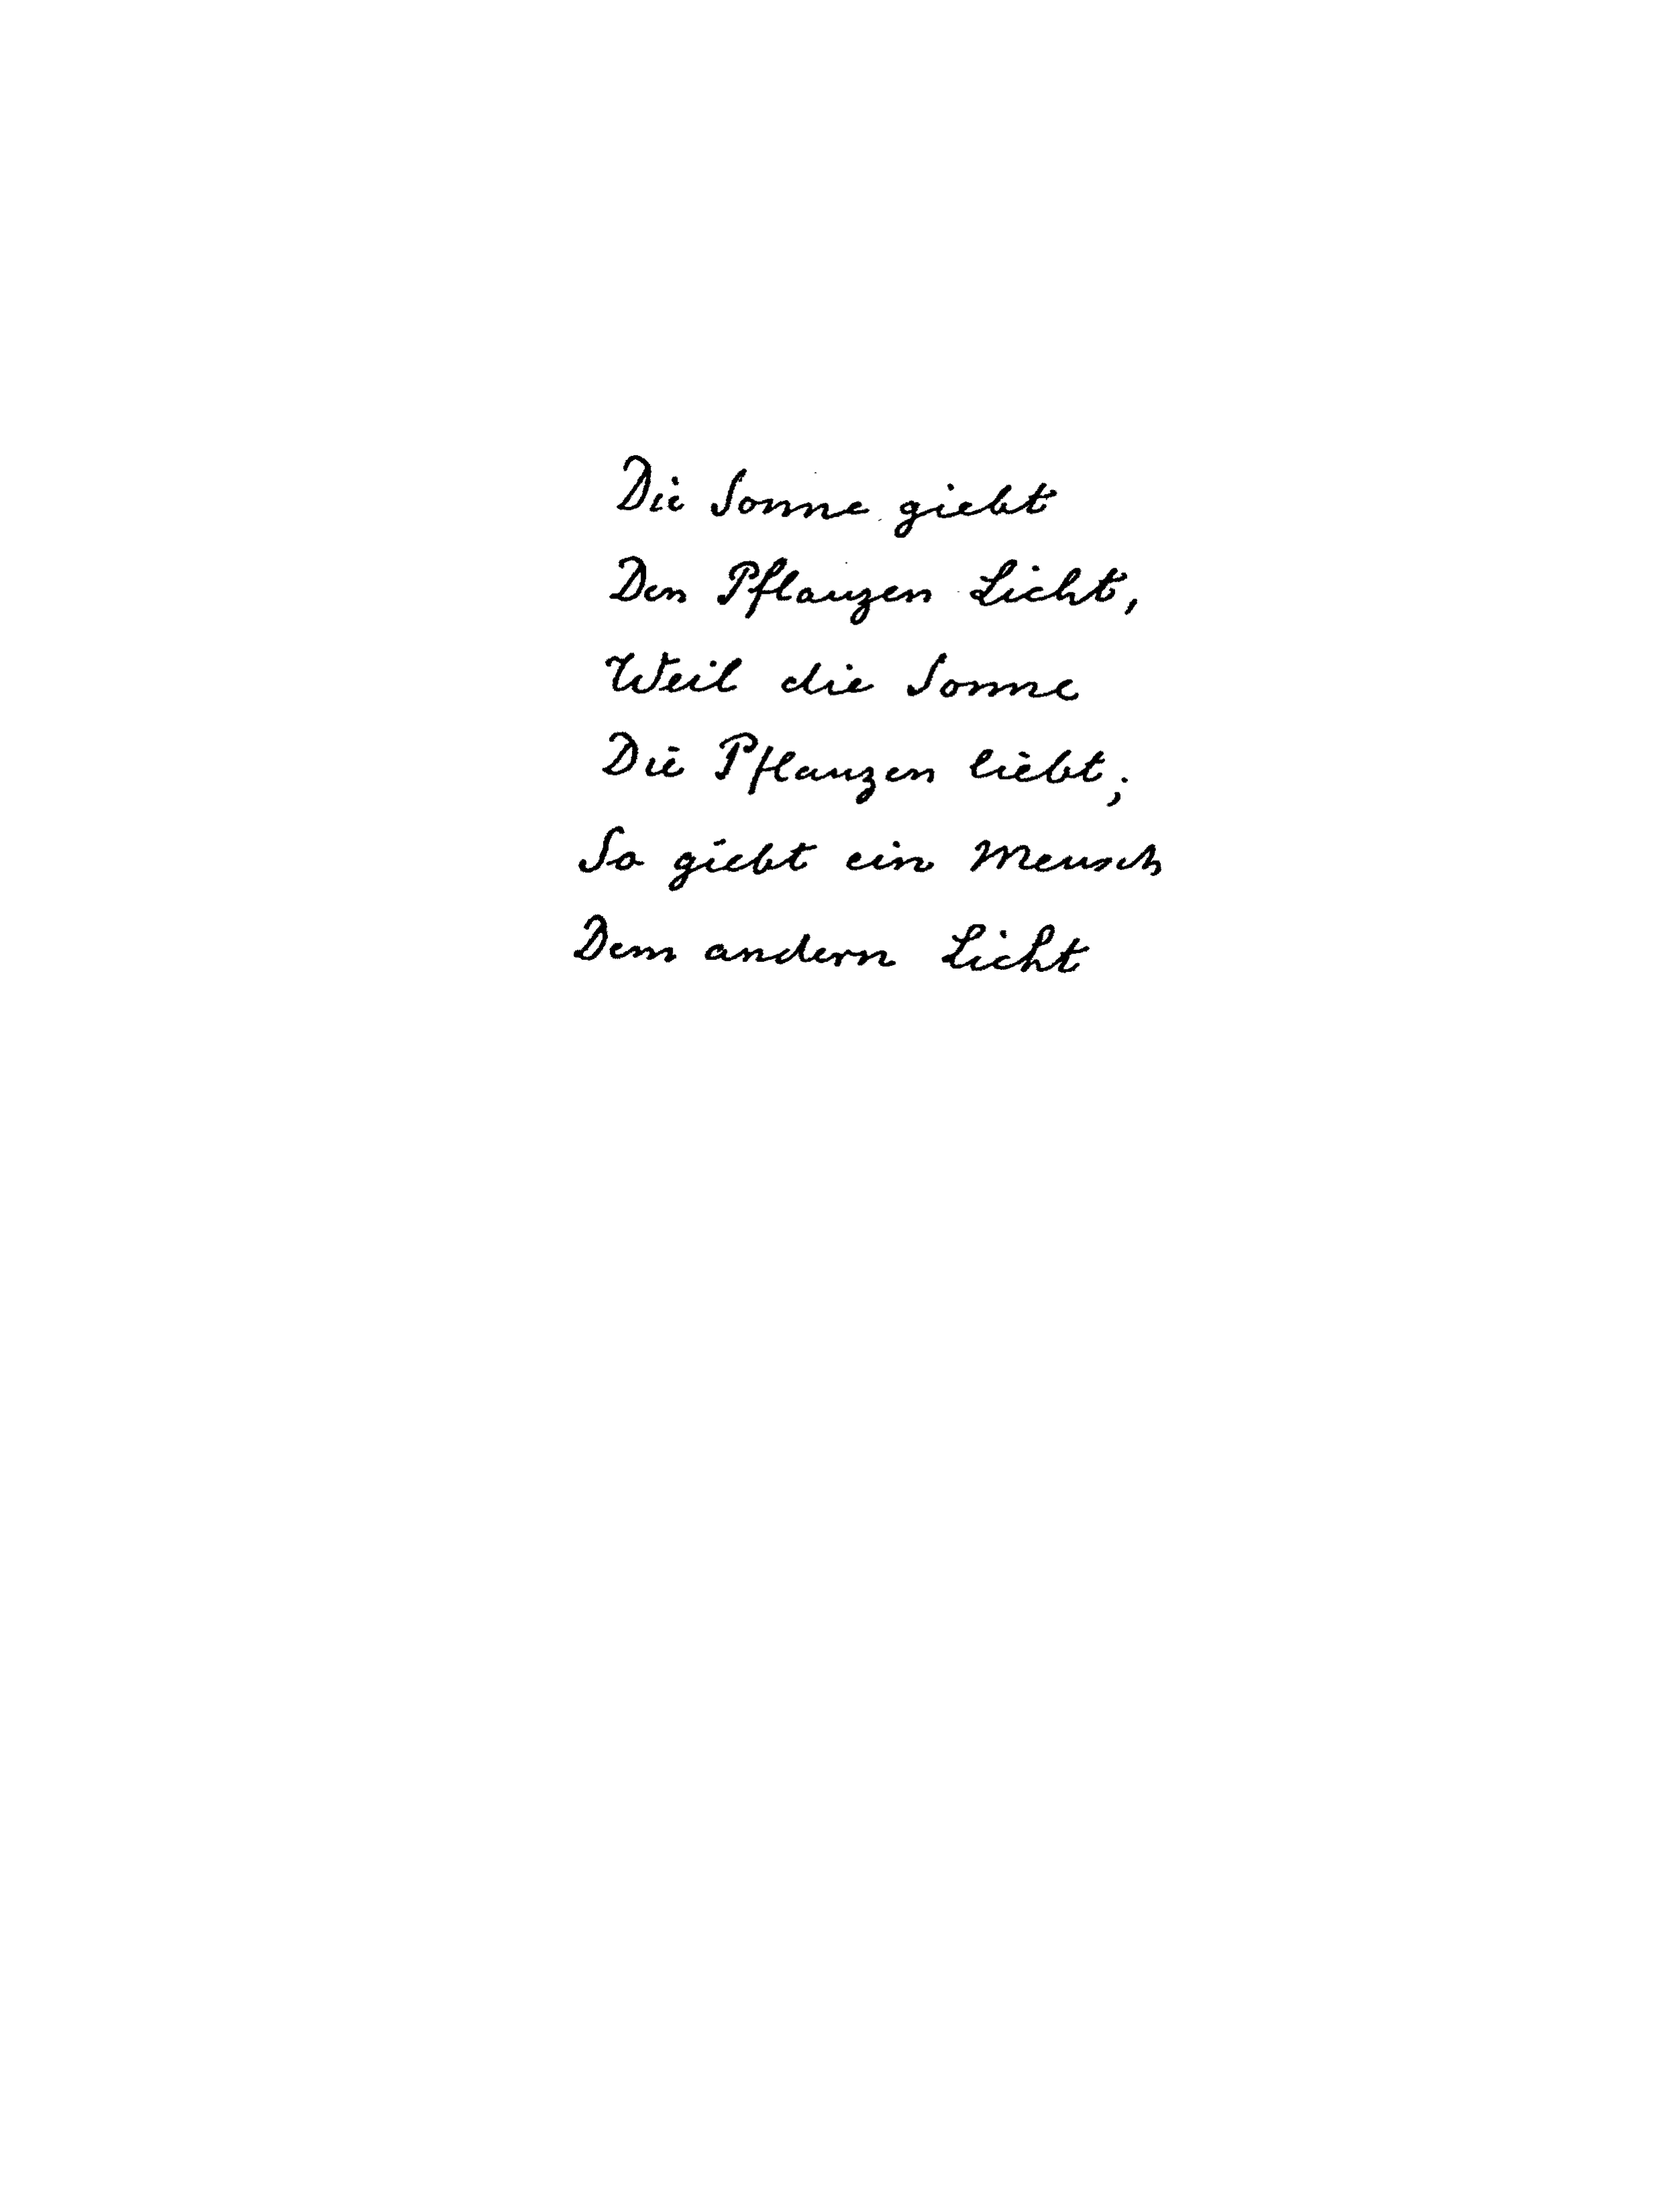 Die Sonne giebt
Den Pflanzen Licht,
Weil die Sonne
Die Pflanzen liebt;
So giebt ein Mensch
Dem andern Licht